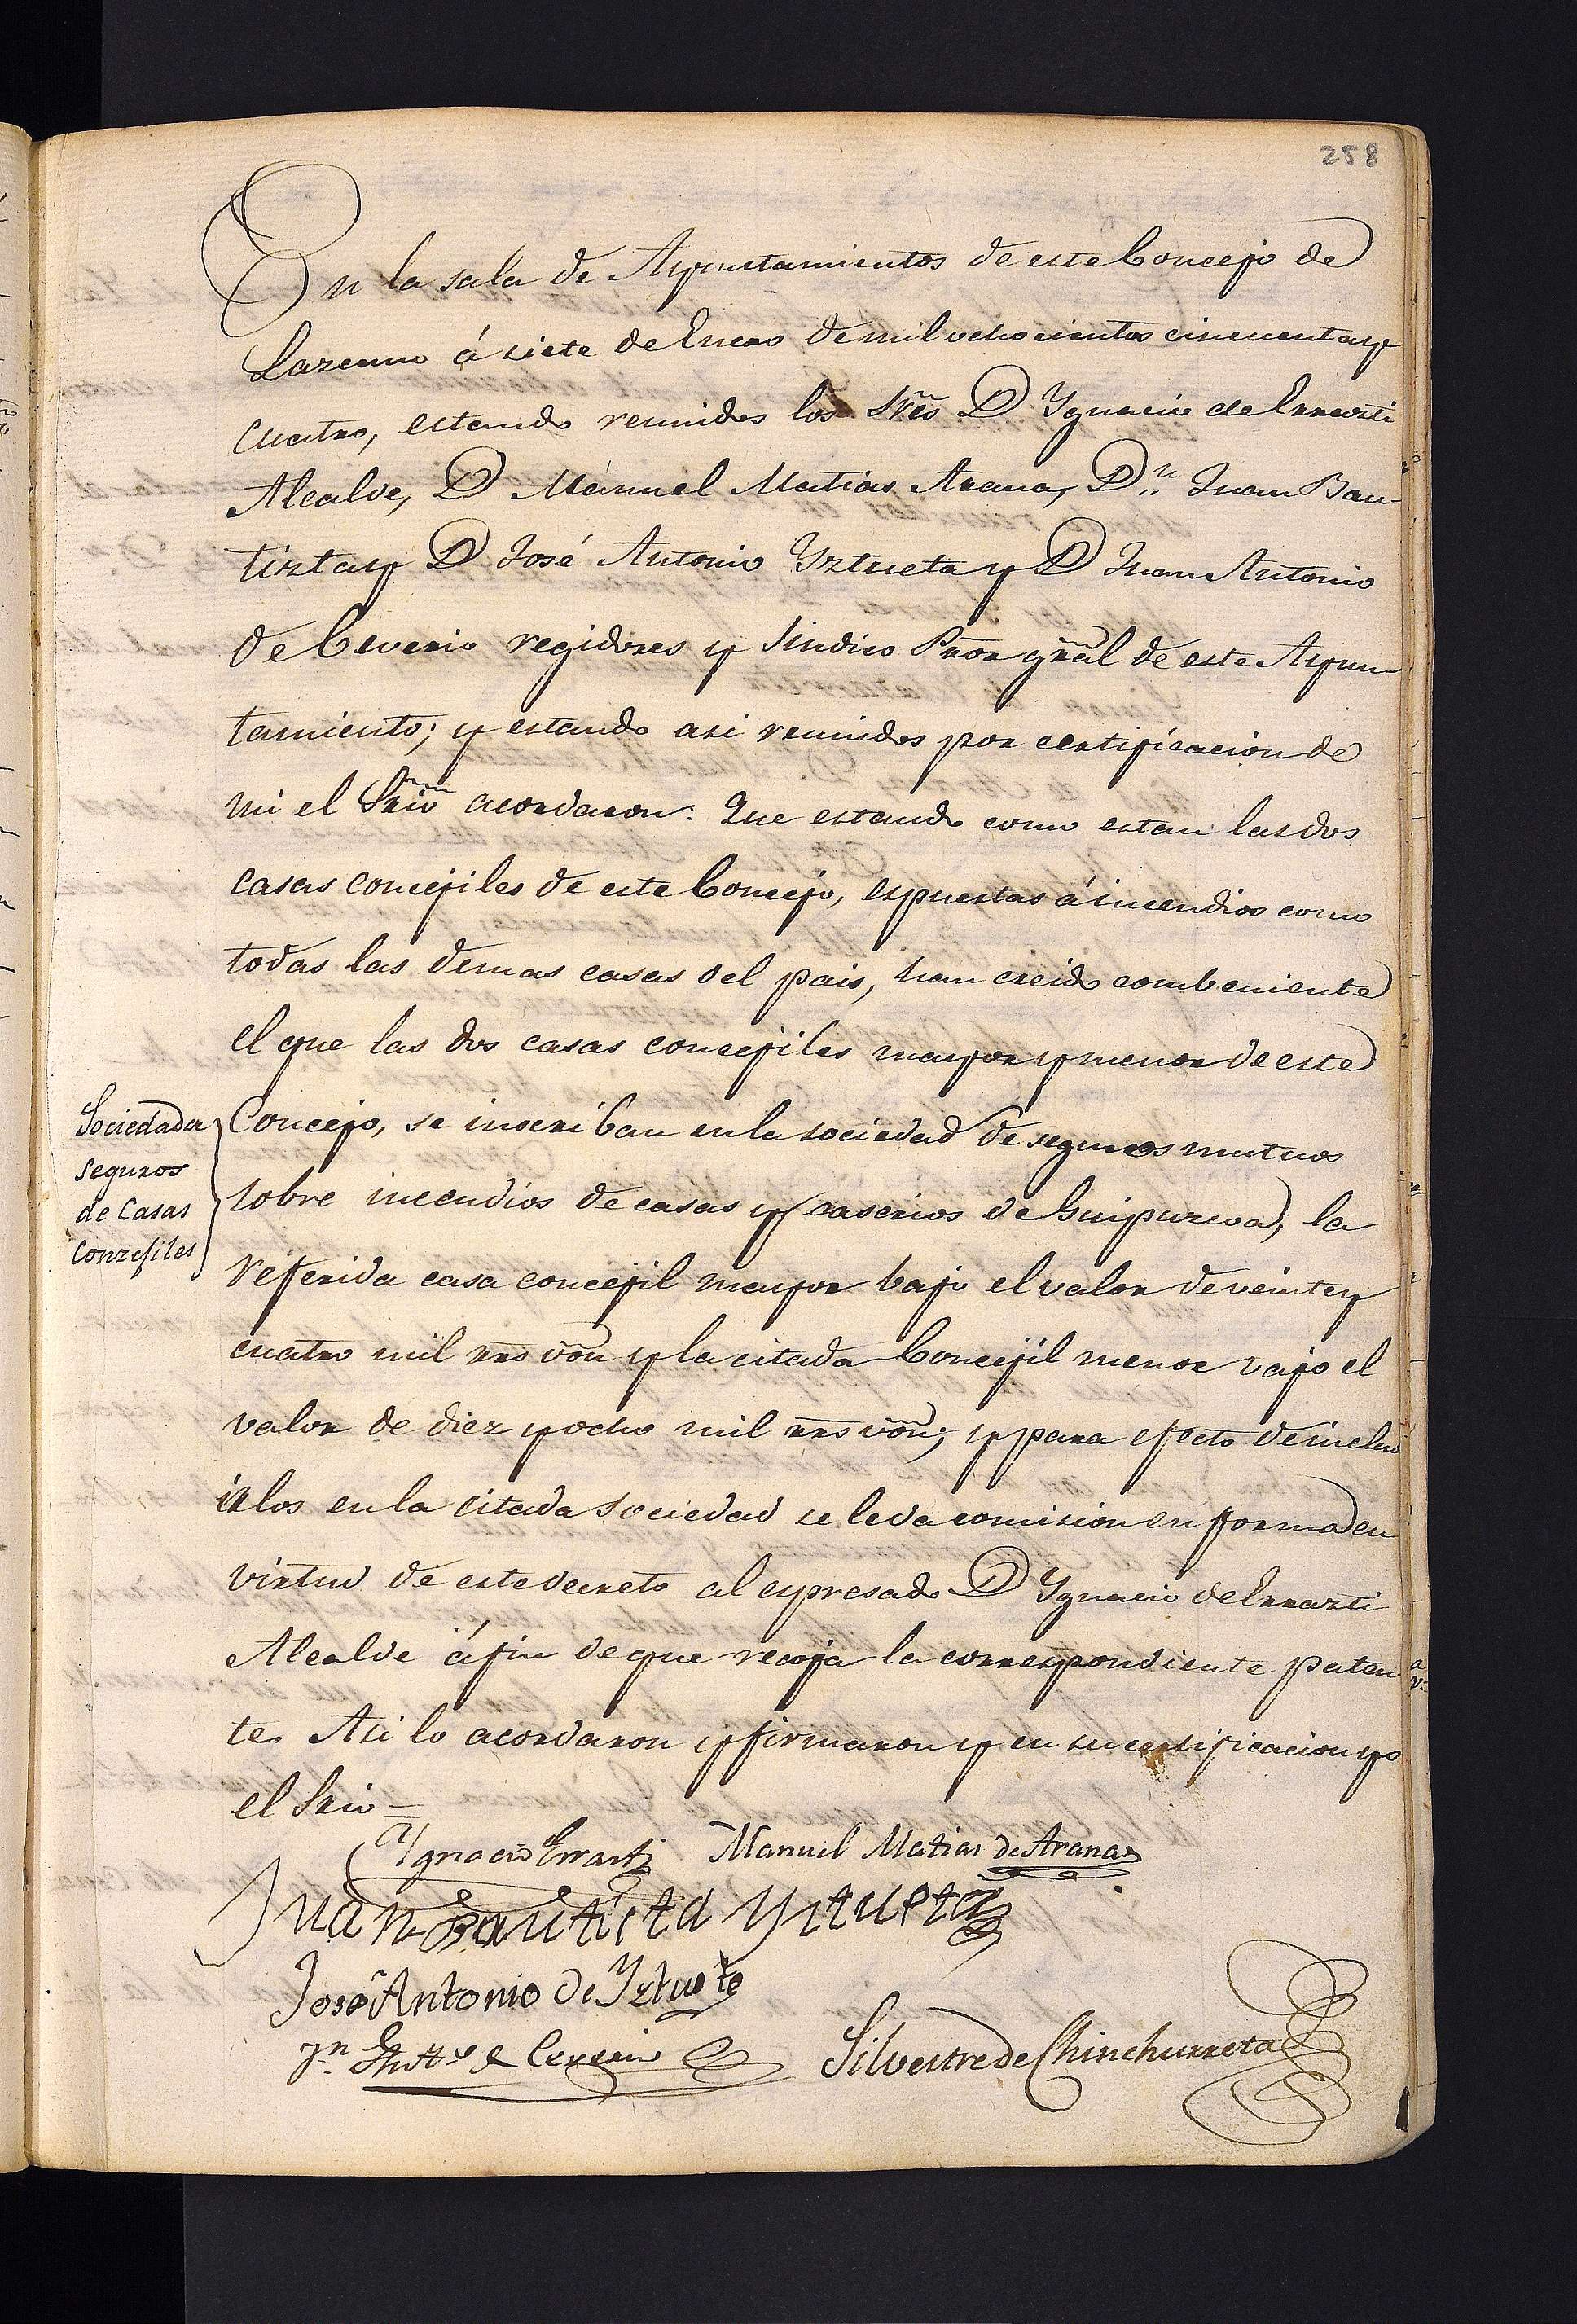 258
En la sala de Ayuntamientos de este Concejo de
Lazcano á siete de Enero de mil ochocientos cincuenta y
cuatro, estando reunidos los Sres D Ygnacio de Errazti
Alcalde, D Manuel Matias Arana, Dn Juan Bau-
tizta y D José Antonio Yztueta y D Juan Antonio
de Ceverio regidores y Sindico Pror gral de este Ayun
tamiento; y estando asi reunidos por certificacion de
mi el Srio acordaron: Que estando como estan las dos
casas concejiles de este Concejo, espuestas á incendios como
todas las demas casas del pais, han creido combeniente
el que las dos casas concejiles mayor y menor de este
Sociedad a
seguros
de Casas
Conzejiles
Concejo, se inscriban en la sociedad de seguros mutuos
sobre incendios de casas y caserios de Guipuzcoa, la
referida casa concejil mayor bajo el valor de veinte y
cuatro mil rrs von y la citada Concejil menor vajo el
valor de diez y ocho mil rrs von; y para efecto de inclu
irlos en la citada sociedad se le da comision en forma en
virtud de este decreto al espresado D Ygnacio de Errazti
Alcalde á fin de que recoja la correspondiente paten
te. Asi lo acordaron y firmaron y en su certificacion yo
el Srio =
Ygnacio Errasti Manuel Matias de Arana
Juan Bautista Yztueta
José Antonio de Yztueta
Jn Anto de Ceverio Silvestre de Chinchurreta